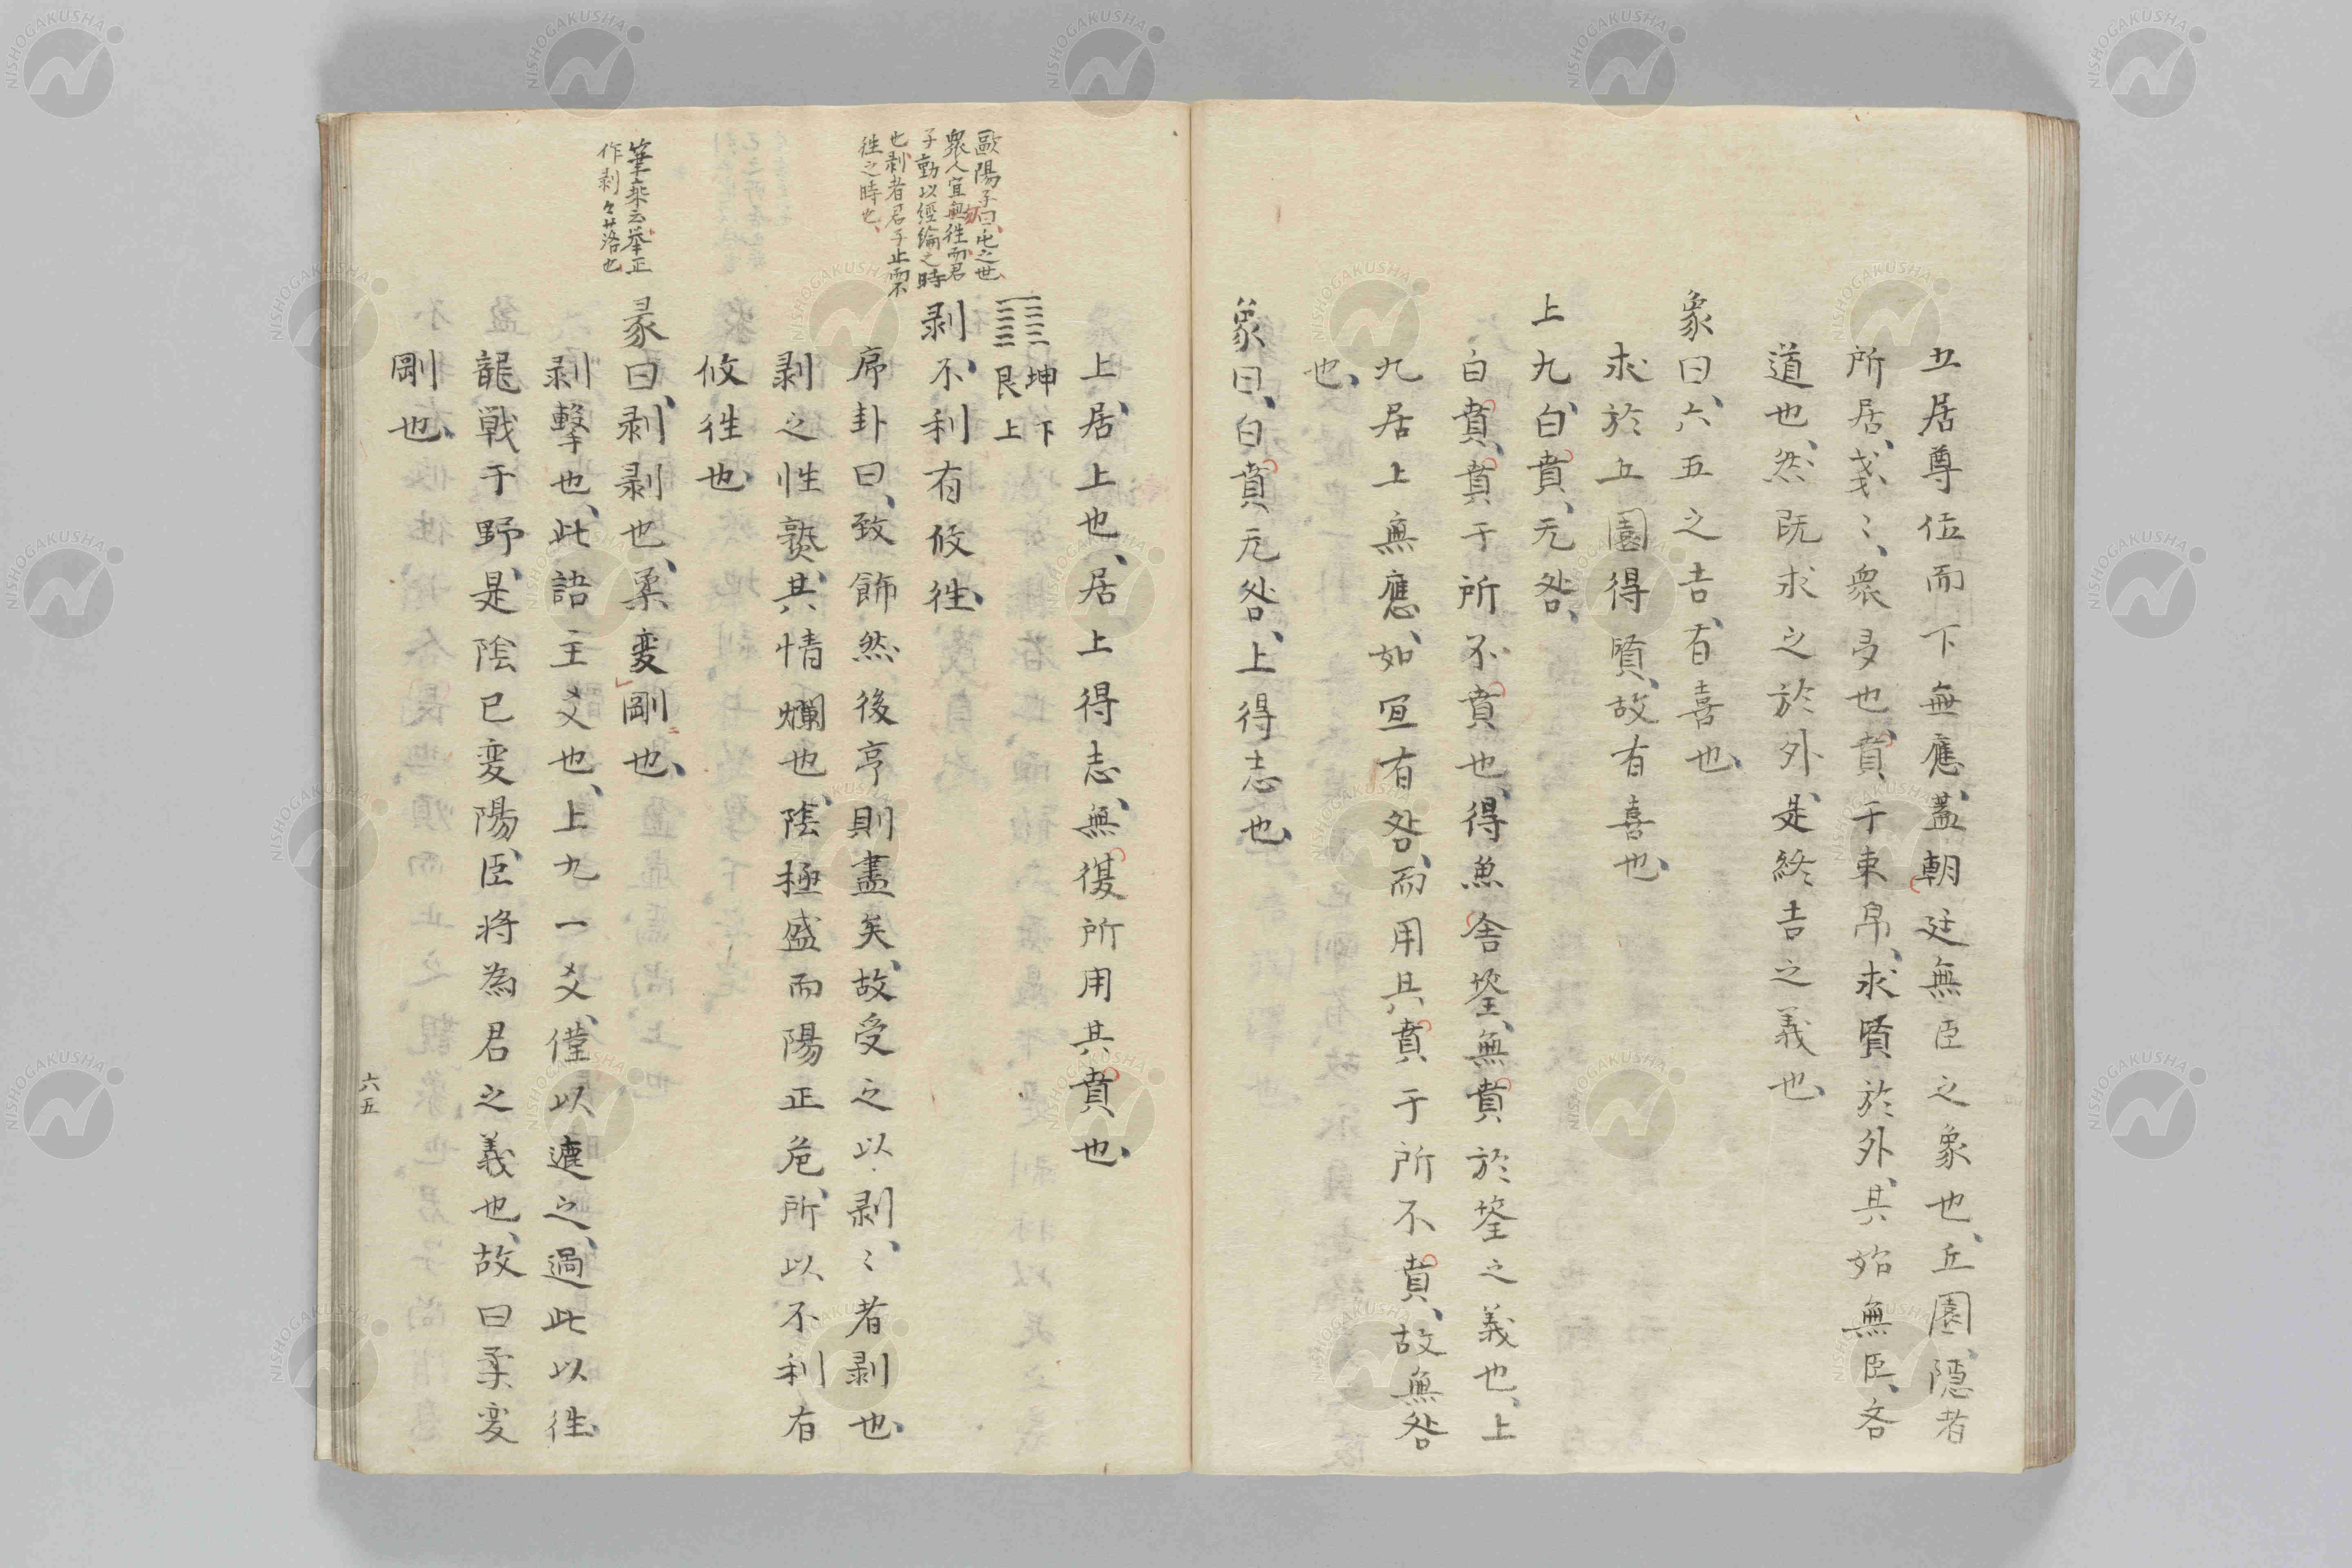 五居尊位而下無應、蓋朝廷無臣之象也、丘園、隱者
所居、戔〻、衆多也、賁于束帛、求賢於外、其始無臣、吝
道也、然既求之於外、是終吉之義也、
象曰、六五之吉、有喜也、
求於丘園得賢、故有喜也、
上九、白賁、无咎、
白賁、賁于所不賁也、得魚舍筌、無賁於筌之義也、上
九居上無應、如宜有咎、而用其賁于所不賁、故無咎
也、
象曰、白賁元咎、上得志也、
上、居上也、居上得志、無復所用其賁也、
坤下
艮上
歐陽子曰、屯之世、
衆人宜無往、而君
子動以經綸之時
也、剥者君子止而不
往之時也、
剥、不利有攸往、
序卦曰、致飾然後亨則盡矣、故受之以剥、〻者剥也、
剥之性爇、其情爛也、陰極盛而陽正危、所以不利有
攸往也、
筆乗云、举正
作剥々落也
彖曰、剥剥也、柔変剛也、
剥擊也、此語主爻也、上九一爻、僅以連之、過此以往、
龍戦于野、是陰已変陽、臣将為君之義也、故曰柔変
剛也、
六五